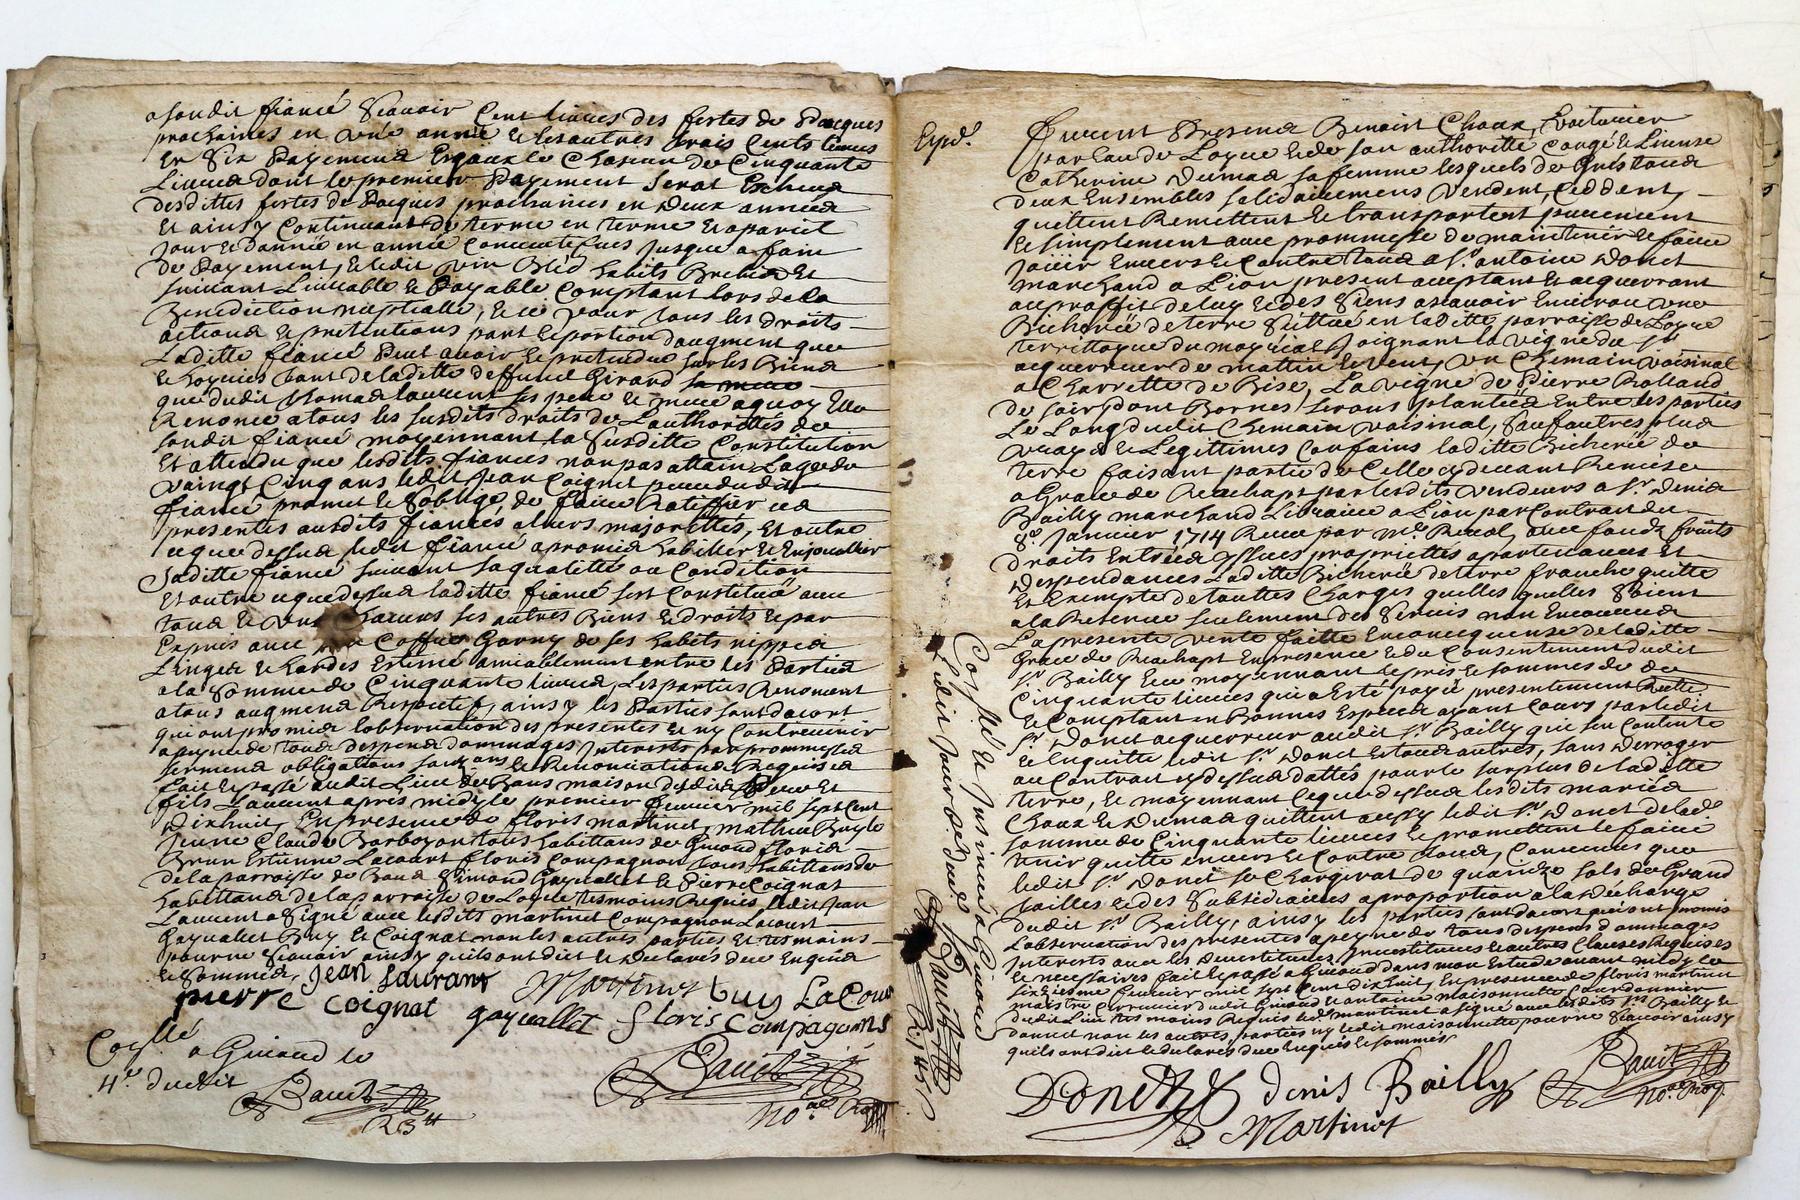 a sondit fiancé Scavoir Cent livres des festes de Pacques
prochaines en une année et les autres trois Cents livres
en Six Payements Egaux le Chacun de Cinquante
Livres dont le premier Payement Serat Escheus
desdittes festes de Pacques prochaines en deux années
Et ainsy Continuant de terme en terme et apareil
Jour et d'année en année Jusque a fain
de Payement, et ledit vin Bled habits Et
suivant Livrable et Payable Comptant lors de la
Benediction nuptialle, et ce pour tous les droits
actions et pretentions part et portion d'augment que
Laditte fiancé Peut avoir et pretendre sur les Biens
de laditte deffunte Girard
que dudit Thomas laurent ses pere et mere aquoy Elle
Renonce a tous les susdits droits de L'authorittés de
sondit fiancé moyennant la Susditte Constitution
Et attendu que lesdits fiancés n'ont pas attain L'age de
vaingt Cinq ans ledit Jean Coignet pere dudit
fiancé promet et s'oblige, de faire Ratiffier ces
presentes ausdits fiancés a leurs majorittés, Et outre
ce que dessus ledit fiancé a promis habiller et Enjoualler
Saditte fiancé suivant sa qualitté ou Condition
Et outre ce que dessus laditte fiancé s'est Constitué avec
tous et uns Chacuns ses autres Biens et droits et par
Expres avec un Coffre Garny de ses habits nippes
Linges et hardes Estimé amiablement entre les Parties
a la Somme de Cinquante livres, Les parties Renoncent
a tous augmens Respectif, ainsy les Parties sont d'acort
qui ont promis l'observation des presentes et n'y Contrevenir
a peyne de tous despens dommages Interests par prommesses
sermens obligations et Renonciations Requises
fait et passé audit Lieu de Bans maison desdits Pere et
fils Laurent apres midy le premier fevrier mil sept Cent
dixhuit, En presence de floris martinet, mathieu Buy le
Jeune Claude Barboyon tous habittans de Givord floris
Brun Estienne Lacourt floris Compagnon tous habittans de
de la parroisse de Bans Simond Gayvallet et Pierre Coignat
habittans de la parroisse de Loyre tesmoins Requis ledit Jean
Laurent a Signé avec lesdits martinet Compagnon Lacourt
Gayvallet Buy et Coignat non les autres parties et tesmoins
pour ne Scavoir ainsy qu'ils ont dit et declarés de ce Enquis
et Sommés,
Jean Laurant
Martinet buy La Cour
pierre Coignat
gayvallet floris Compagons
Coll^né
a Givord le
4^e dudit
Bault
R 3^#
Bault
No^re Roy
Exped.
Furent Presens Benoist Choux, Voiturier
par Eau de Loyre et de son authoritté congé et License
Catherine Dumas sa femme lesquels de Gré tous
deux Ensembles solidairement Vendent, Ceddent,
quittent Remettent et transportent purement
et simplement avec prommesse de maintenir et faire
Jouir Envers et Contre tous a S^r. antoine Donet
marchand a Lion present acceptant et acquerrant
au proffit de luy et des Siens ascavoir Environ une
Bicherée de terre Sittuée en laditte parroisse de Loyre
territtoyre du Joignant la vigne du S^r
acquerreur de mattin et vent, un Chemain voisinal
a Charrette de Bise, La vigne de Pierre Rolland
de soir, dont Bornes serons plantées Entre les parties
Le Long dudit Chemain voisinal, Sauf autres plus
vrays et Legittimes Confains laditte Bicherée de
terre faisant partie de Celle cy devant Remise
a Grace de Reachapt par lesdits vendeurs a S^r. Denis
Bailly marchand Libraire a Lion par Contrait du
8^e Janvier 1714 Receu par m^e. avec fonds fruits
Droits Entrées yssues proprietés apartenances Et
Despendances Laditte Bicherée de terre franche quitte
Et Exempte de touttes Charges quelles quelles Soient
a la Reserve seulement des Servis non Encourus
La presente vente faitte Enconsequense de laditte
Grace de Reachapt En presence et du Consentement dudit
S^r. Bailly et ce moyennant le pris et somme de
Cinquante livres qui a Esté payé presentement
et Comptant en Bonnes Especes ayant Cours par ledit
S^r. Donet acquerreur audit S^r. Bailly qui s'en Contente
et En quitte ledit S^r. Donet et tous autres, sans derroger
au Contrait cy dessus dattés pour le surplus de laditte
terre, et moyennant ce que dessus lesdits mariés
Choux et Dumas quittent aussy ledit S^r. Donet de lad^e
somme de Cinquante livres et promettent le faire
tenir quitte envers et Contre tous, Convenus que
ledit S^r. Donet se Chargerat de quainze sols de Grand
tailles et des Subsidiaires a proportion a la descharge
dudit S^r. Bailly, ainsy les parties sont d'acort qui ont promis
L'observation des presentes a peyne de tous despens dommages
Interests avec les devestitures Investitures et autres Clauses Requises
et necessaires fait et passé a Givord dans mon Estude avant midy le
sixiesme fevrier mil sept Cent dixhuit, En presence de floris martinet
maistre dudit Givord et antoine maisonnette Cordonnier
dudit Lieu tesmoins Requis led. martinet a signé avec lesdits S^rs Bailly et
Donnet non les autres parties ny ledit maisonnette pour ne Scavoir ainsy
qu'ils ont dit et declarés de ce Enquis et sommés
Donet
denis Bailly
Martinet
Bault
No^re Roy.
Coll^né et Insinué a Givord
Ledit Jour
Bault